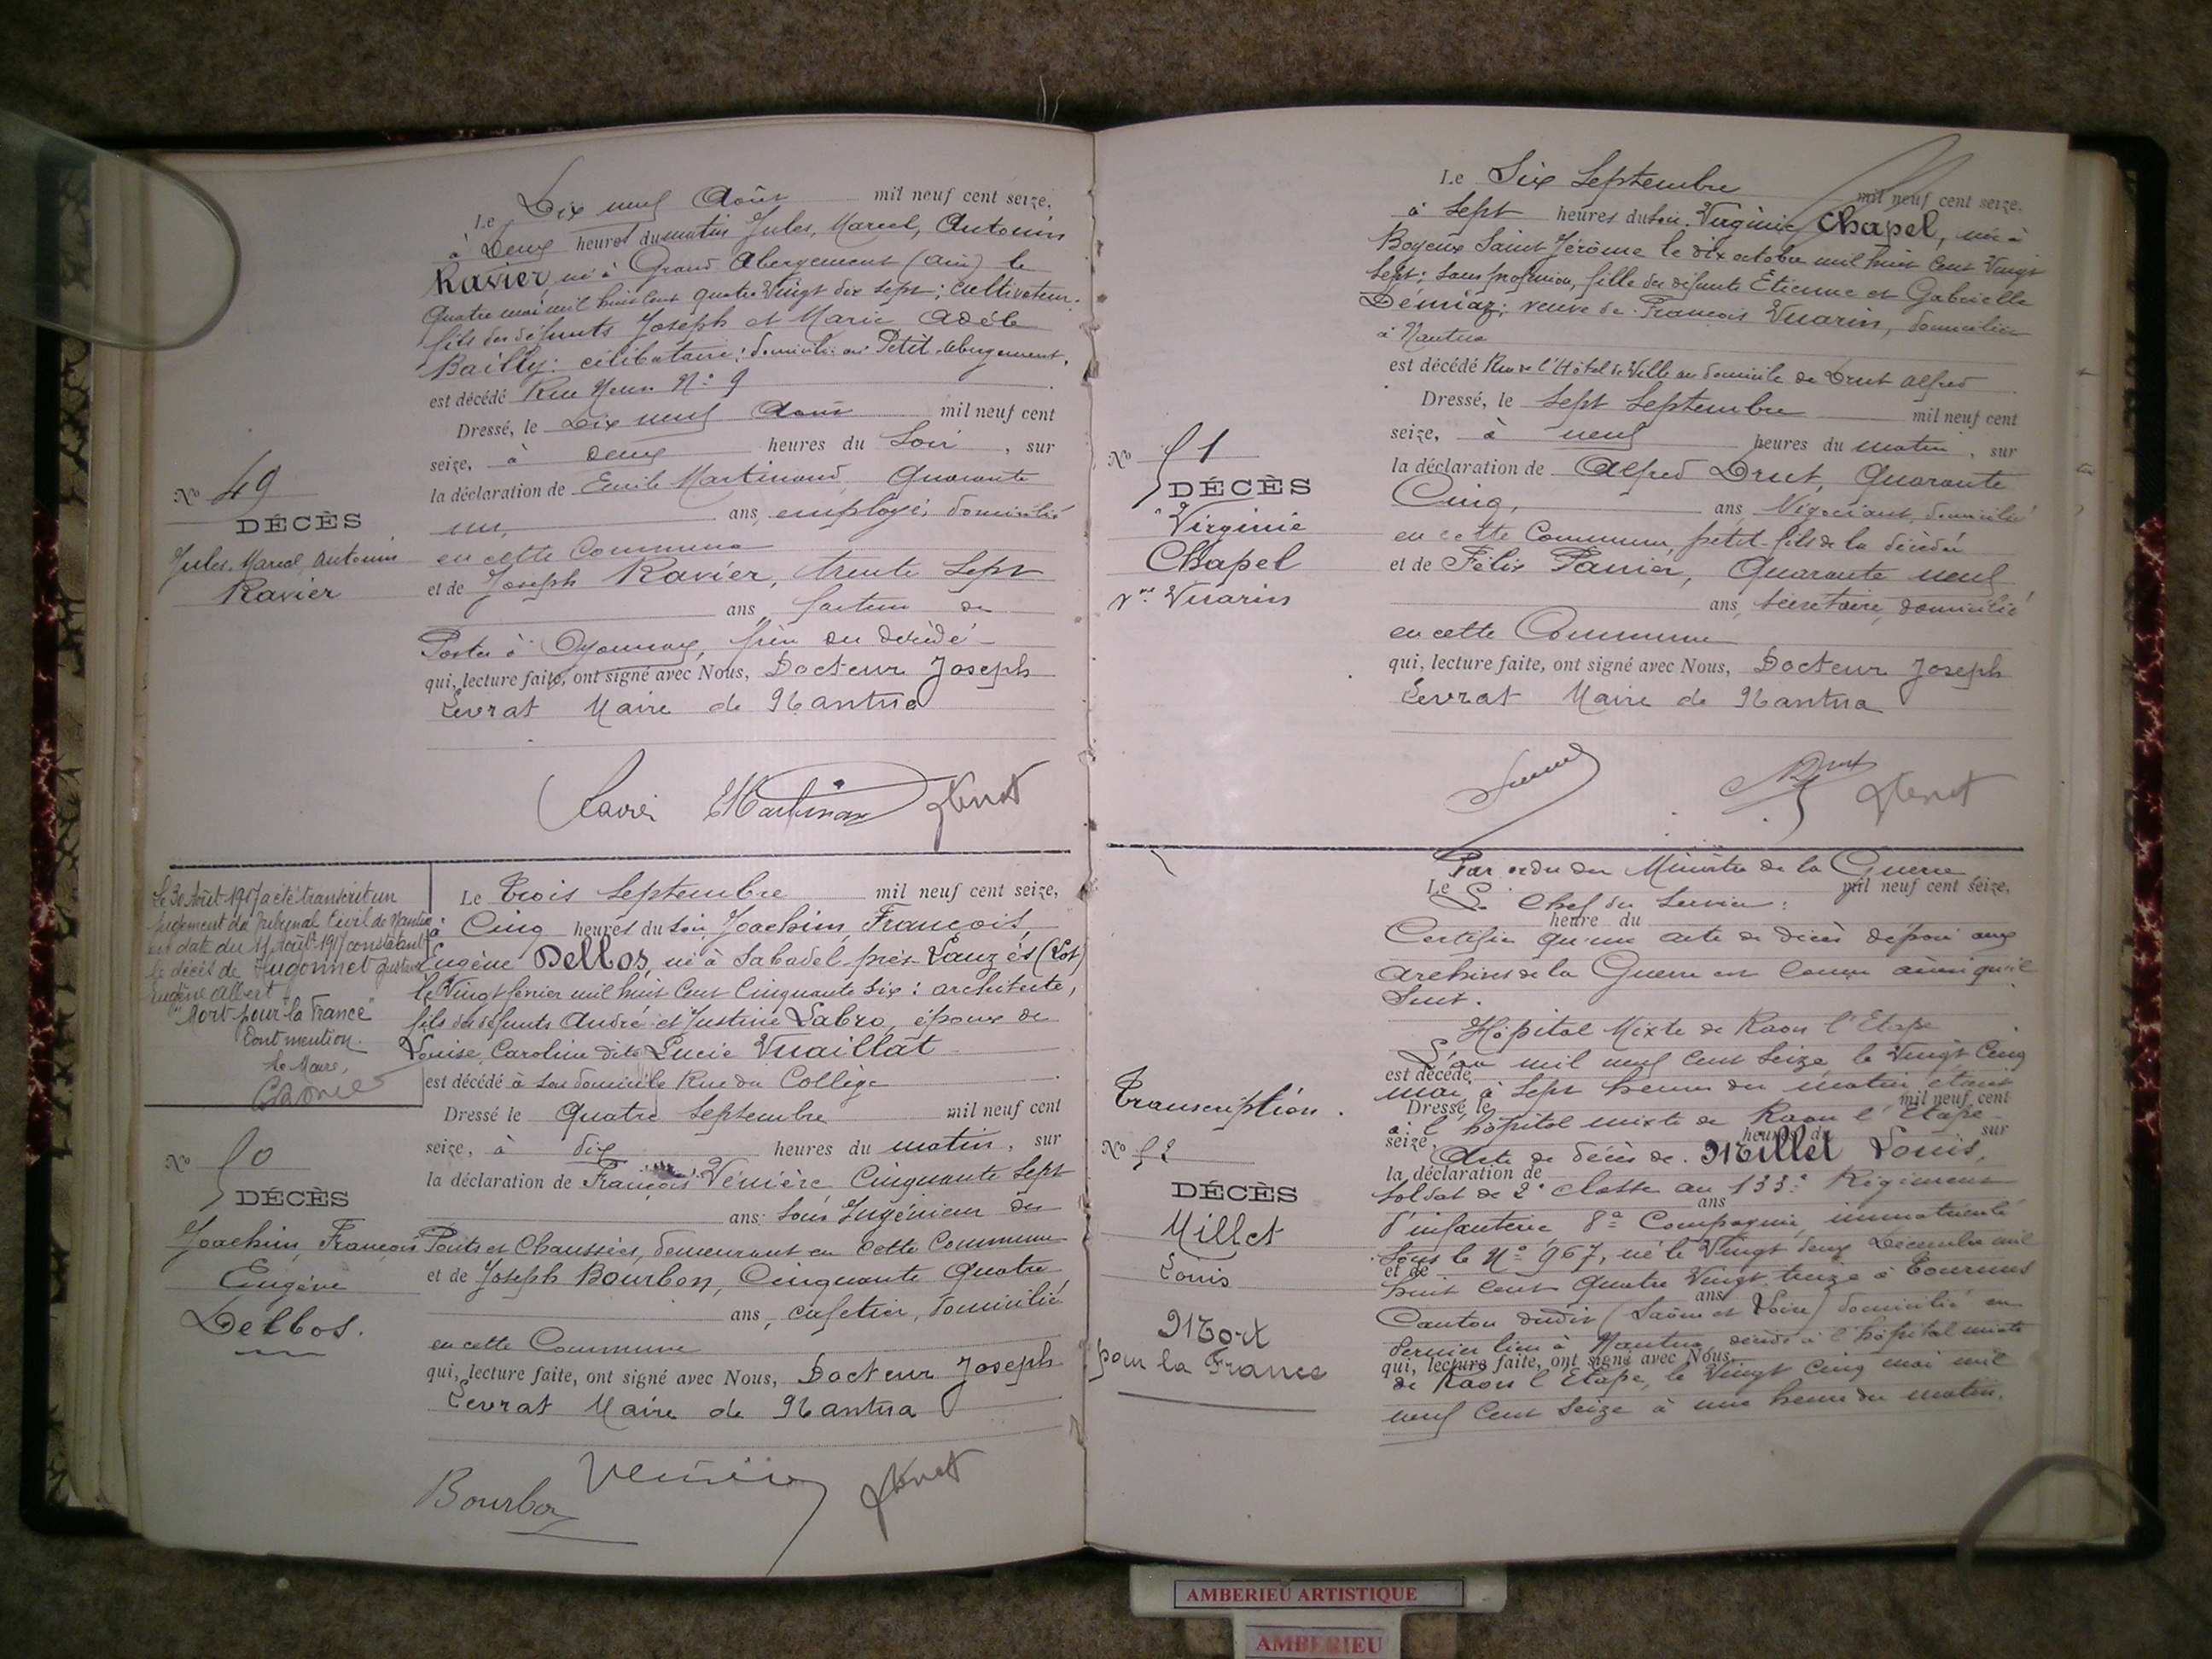 Le Dix neuf Août mil neuf cent seize,
à Deux heures du matin Jules, Marcel, Antonin
Ravier, né à Grand Abergement (Ain) le
Quatre mai mil huit cent quatre Vingt dix sept; cultivateur.
fils des défunts Joseph et Marie Adèle
Bailly: célibataire; domicilié au Petit-Abergement,
est décédé Rue Neuve N° 9
Dressé, le Dix neuf Août mil neuf cent
seize, à Deux heures du Soir, sur
la déclaration de Emile Martinand, Quarante
un, ans, employé, domicilié
en cette Commune
et de Joseph Ravier, trente Sept
ans, facteur des
Postes à Oyonnax, frère du décédé
qui, lecture faite, ont signé avec Nous, Docteur Joseph
Levrat Maire de Nantua
N° 49
DÉCÈS
Jules, Marcel, Antonin
Ravier
Ravier
Le 30 Août 1917 a été transcrit un
jugement du Tribunal Civil de Nantua
en date du 17 Août 1917 constatant
le décès de Hugonnet Gustave
Eugène Albert
"Mort pour la France"
Dont mention.
Le Maire,
Le Trois Septembre mil neuf cent seize,
à Cinq heures du soir, Joachim, François,
Eugène Delbos, né à Sabadel-près-Lauzès (Lot)
le Vingt février mil huit cent Cinquante six: architecte,
fils des défunts André et Justine Labro, époux de
Louise, Caroline dite Lucie Vuaillat
est décédé à son domicile Rue du Collège
Dressé le Quatre Septembre mil neuf cent
seize, à dix heures du matin, sur
la déclaration de François Vénière Cinquante Sept
ans: Sous Ingénieur des
Ponts et Chaussées, demeurant en cette Commune
et de Joseph Bourbon, Cinquante Quatre
ans, cafetier, domicilié
en cette Commune
qui, lecture faite, ont signé avec Nous, Docteur Joseph
Levrat Maire de Nantua
N° 50
DÉCÈS
Joachim, François
Eugène
Delbos.
Bourbon
Le Six Septembre mil neuf cent seize,
à Sept heures du soir. Virginie Chapel, née à
Boyeux Saint Jérôme le dix octobre mil huit cent Vingt
Sept; sans profession, fille des défunts Etienne et Gabrielle
Démiaz; veuve de François Vuarin, domiciliée
à Nantua
est décédé Rue de l'Hôtel de Ville au domicile de Drut Alfred
Dressé, le Sept Septembre mil neuf cent
seize, à neuf heures du matin, sur
la déclaration de Alfred Drut, Quarante
Cinq, ans Négociant, domicilié
en cette Commune, petit-fils de la décédée
et de Félix Panier, Quarante neuf
ans, secrétaire, domicilié
en cette Commune
qui, lecture faite, ont signé avec Nous, Docteur Joseph
Levrat Maire de Nantua
N° 51
DÉCÈS
Virginie
Chapel
Vve Vuarin
Par ordre du Ministre de la Guerre
Le mil neuf cent seize,
Le Chef du Service:
heure du
Certifie qu'un acte de décès déposé aux
archives de la Guerre est conçu ainsi qu'il
Suit.
Hôpital Mixte de Raon l'Etape
L'an mil neuf cent Seize le Vingt Cinq
est décédé
mai, à Sept heures du matin étant
Dressé, le mil neuf cent
à l'hôpital mixte de Raon l'Etape
seize, heures du sur
Acte de décès de Millet Louis,
la déclaration de
Soldat de 2e classe au 133e Régiment
ans
d'infanterie 8e Compagnie, immatriculé
Sous le N° 967, né le Vingt deux Décembre mil
et de
huit cent Quatre Vingt treize à Tournus
ans
Canton dudit (Saône et Loire) domicilié en
dernier lieu à Nantua, décédé à l'hôpital mixte
qui, lecture faite, ont signé avec Nous,
de Raon l'Etape, le Vingt Cinq mai mil
neuf Cent Seize à une heure du matin.
Transcription.
N° 52
DÉCÈS
Millet
Louis
Mort
pour la France
AMBERIEU ARTISTIQUE
AMBERIEU